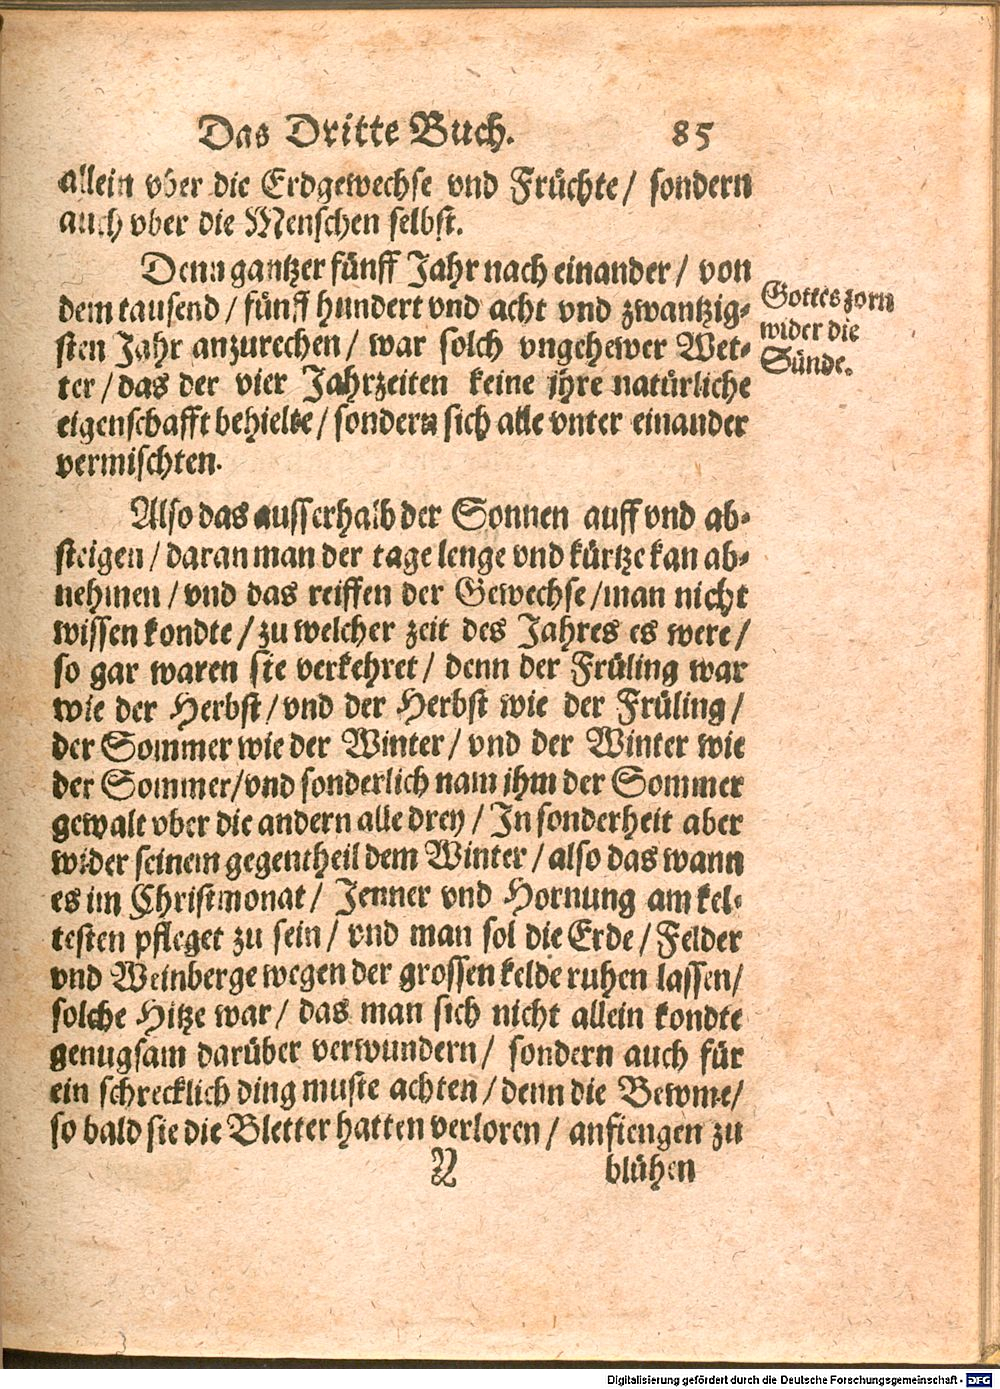 Das Dritte Buch. 85
allein vber die Erdgewechse vnd Früchte/ sondern
auch vber die Menschen selbst.
Denn gantzer fünff Jahr nach einander / von
dem tausend / fünff hundert vnd acht vnd zwantzig-
sten Jahr anzurechen / war solch vngehewer Wet-
ter / das der vier Jahrzeiten keine jhre natürliche
eigenschafft behielte / sondern sich alle vnter einander
vermischten.
Gottes zorn
wider die
Sünde.
Also das ausserhalb der Sonnen auff vnd ab-
steigen / daran man der tage lenge vnd kürtze kan ab-
nehmen / vnd das reiffen der Gewechse / man nicht
wissen kondte / zu welcher zeit des Jahres es were /
so gar waren sie verkehret / denn der Früling war
wie der Herbst / vnd der Herbst wie der Früling /
der Sommer wie der Winter / vnd der Winter wie
der Sommer / vnd sonderlich nam jhm der Sommer
gewalt vber die andern alle drey / In sonderheit aber
wider seinem gegentheil dem Winter / also das wann
es im Christmonat / Jenner vnd Hornung am kel-
testen pfleget zu sein / vnd man sol die Erde / Felder
vnd Weinberge wegen der grossen kelde ruhen lassen /
solche Hitze war / das man sich nicht allein kondte
genugsam darüber verwundern / sondern auch für
ein schrecklich ding muste achten / denn die Bewme /
so bald sie die Bletter hatten verloren / anfiengen zu
blühen
Digitalisierung gefördert durch die Deutsche Forschungsgemeinschaft - DFG